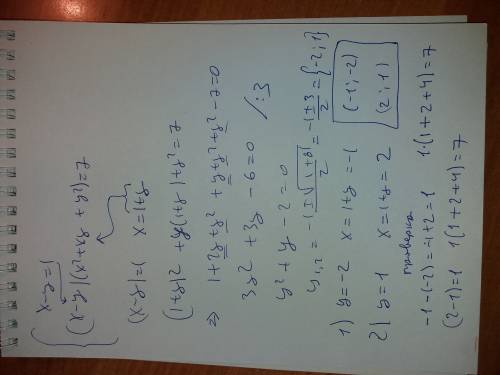 { x-y=1
(x-y)(x²+xy+y²)=7
(x-y)=1 x=1+y
(1+y)²+y(1+y)+y²=7
⇒ 1+2y+y²+y+y²+y²-7=0
3y²+3y-6=0 /:3
y²+y-2=0
y₁,₂=(-1±√(1+8))/2=(-1±3)/2={-2;1}
1) y=-2 x=1+y=-1 (-1;-2)
2) y=1 x=1+y=2 (2;1)
проверка
-1-(-2)=-1+2=1 1·(1+2+4)=7
(2-1)=1 1(1+2+4)=7